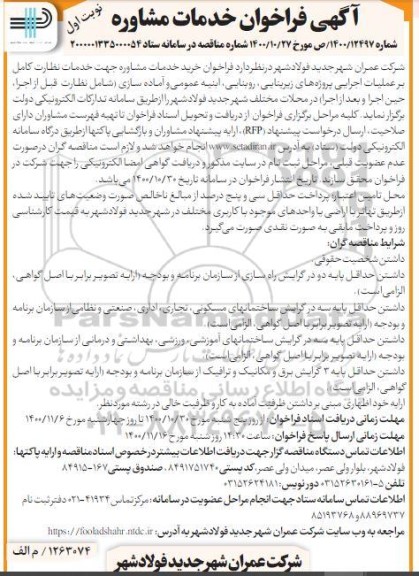 نوبت اول
آگهی فراخوان خدمات مشاوره
شماره ۱۴۰۰/۱۲۴۹۷/ص مورخ ۱۴۰۰/۱۰/۲۷ شماره مناقصه در سامانه ستاد ۲۰۰۰۰۰۱۳۳۵۰۰۰۰۵۴
شرکت عمران شهر جدید فولادشهر در نظر دارد فراخوان خرید خدمات مشاوره جهت خدمات نظارت کامل
بر عملیات اجرایی پروژه‌های زیربنایی، روبنایی، ابنیه عمومی و آماده سازی (شامل نظارت قبل از اجرا،
حین اجرا و بعد از اجرا) در محلات مختلف شهر جدید فولادشهر را از طریق سامانه تدارکات الکترونیکی دولت
برگزار نماید. کلیه مراحل برگزاری فراخوان از دریافت و تحویل اسناد فراخوان تا تهیه فهرست مشاوران دارای
صلاحیت، ارسال درخواست پیشنهاد (RFP)، ارایه پیشنهاد مشاوران و بازگشایی پاکتها از طریق درگاه سامانه
الکترونیکی دولت (ستاد) به آدرس www.setadiran.ir انجام خواهد شد و لازم است مناقصه گران در صورت
عدم عضویت قبلی، مراحل ثبت نام در سایت مذکور و دریافت گواهی امضا الکترونیکی را جهت شرکت در
فراخوان محقق سازند. تاریخ انتشار فراخوان در سامانه تاریخ ۱۴۰۰/۱۰/۳۰ می‌باشد.
محل تامین اعتبار: پرداخت حداقل سی و پنج درصد از مبالغ ناخالص صورت وضعیت‌های تایید شده
از طریق تهاتر با اراضی یا واحدهای موجود با کاربری مختلف در شهر جدید فولادشهر به قیمت کارشناسی
روز و پرداخت مابقی به صورت نقدی صورت می‌گیرد.
شرایط مناقصه گران:
داشتن شخصیت حقوقی.
داشتن حداقل پایه دو در گرایش راه سازی از سازمان برنامه و بودجه (ارایه تصویر برابر با اصل گواهی،
الزامی است)
داشتن حداقل پایه سه در گرایش ساختمانهای مسکونی، تجاری، اداری، صنعتی و نظامی از سازمان برنامه
و بودجه (ارایه تصویر برابر با اصل گواهی، الزامی است)
داشتن حداقل پایه سه در گرایش ساختمانهای آموزشی، ورزشی، بهداشتی و درمانی از سازمان برنامه و
بودجه (ارایه تصویر برابر با اصل گواهی، الزامی است)
داشتن حداقل پایه ۳ گرایش برق و مکانیک و ترافیک از سازمان برنامه و بودجه (ارایه تصویر برابر با اصل
گواهی، الزامی است)
ارایه خود اظهاری مبنی بر داشتن ظرفیت آماده به کار و ظرفیت خالی در رشته مورد نظر.
مهلت زمانی دریافت اسناد فراخوان: از روز پنج شنبه مورخ ۱۴۰۰/۱۰/۳۰ تا روز چهارشنبه مورخ ۱۴۰۰/۱۱/۶
مهلت زمانی ارسال پاسخ فراخوان: ساعت ۱۴:۳۰ روز شنبه مورخ ۱۴۰۰/۱۱/۱۶
اطلاعات تماس دستگاه مناقصه گزار جهت دریافت اطلاعات بیشتر در خصوص اسناد مناقصه و ارایه پاکتها:
فولادشهر، بلوار ولی عصر، میدان ولی عصر، کد پستی ۸۴۹۱۷۵۱۷۴۰، صندوق پستی ۱۶۷-۸۴۹۱۵
تلفن ۵-۰۳۱۵۲۶۳۰۱۶۱ دورنویس: ۰۳۱۵۲۶۲۴۱۸۱
اطلاعات تماس سامانه ستاد جهت انجام مراحل عضویت در سامانه: مرکز تماس ۴۱۹۳۴-۰۲۱ دفتر ثبت نام
۸۸۹۶۹۷۳۷ و ۸۵۱۹۳۷۶۸
مراجعه به وب سایت شرکت عمران شهر جدید فولادشهر به آدرس: https://fooladshahr.ntdc.ir
۱۲۶۳۰۷۴ / م الف
شرکت عمران شهر جدید فولادشهر